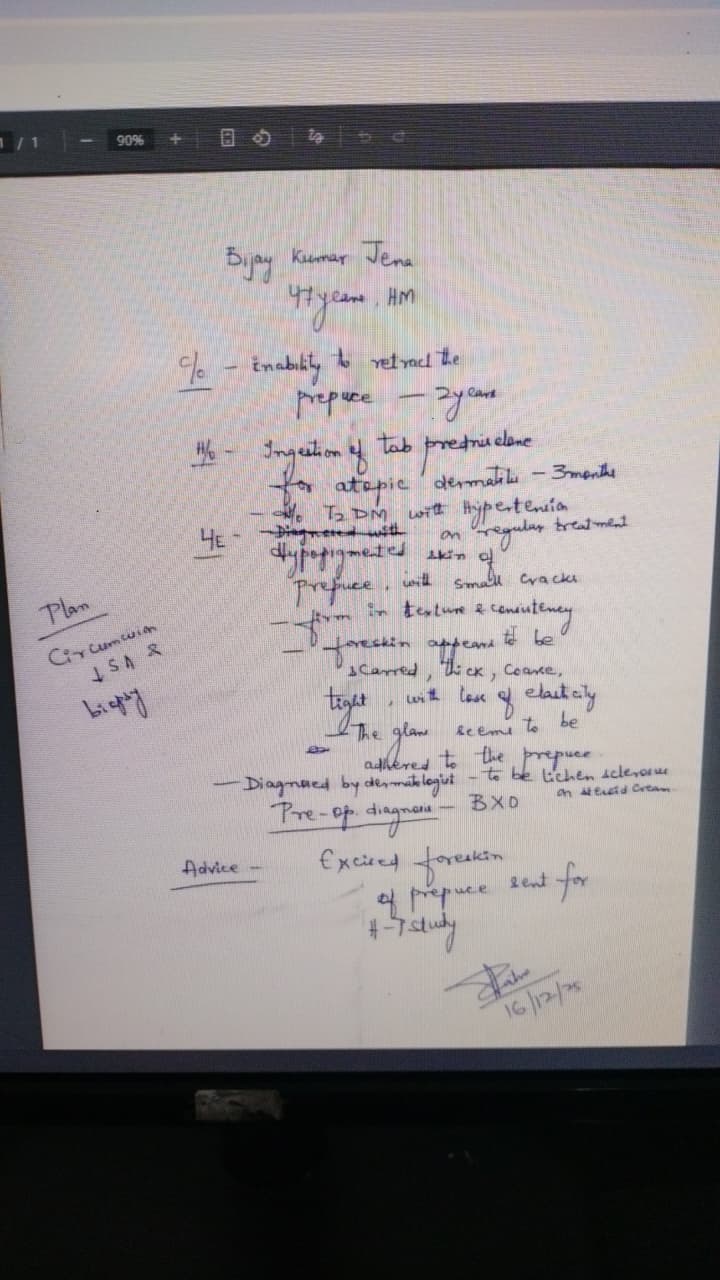 1 / 1 − 90% +
Bijay Kumar Jena
47 years, HM
C/o - Inability to retract the
prepuce - 2 years
H/o - Ingestion of tab prednisolone
for atopic dermatitis - 3 months
- H/o T2 DM with Hypertension
on regular treatment
Diagnosed with
Hypopigmented skin of
Prepuce, with small cracks
- firm in texture & consistency
- foreskin appears to be
scarred, thick, coarse,
tight, with loss of elasticity
- The glans seems to be
adhered to the prepuce.
- Diagnosed by dermatologist - to be lichen sclerosus
on steroid cream
Pre-op. diagnosis - BXO
Plan
Circumcision
↓ SA &
biopsy
Advice - Excised foreskin
of prepuce sent for
H-P study
16/12/25